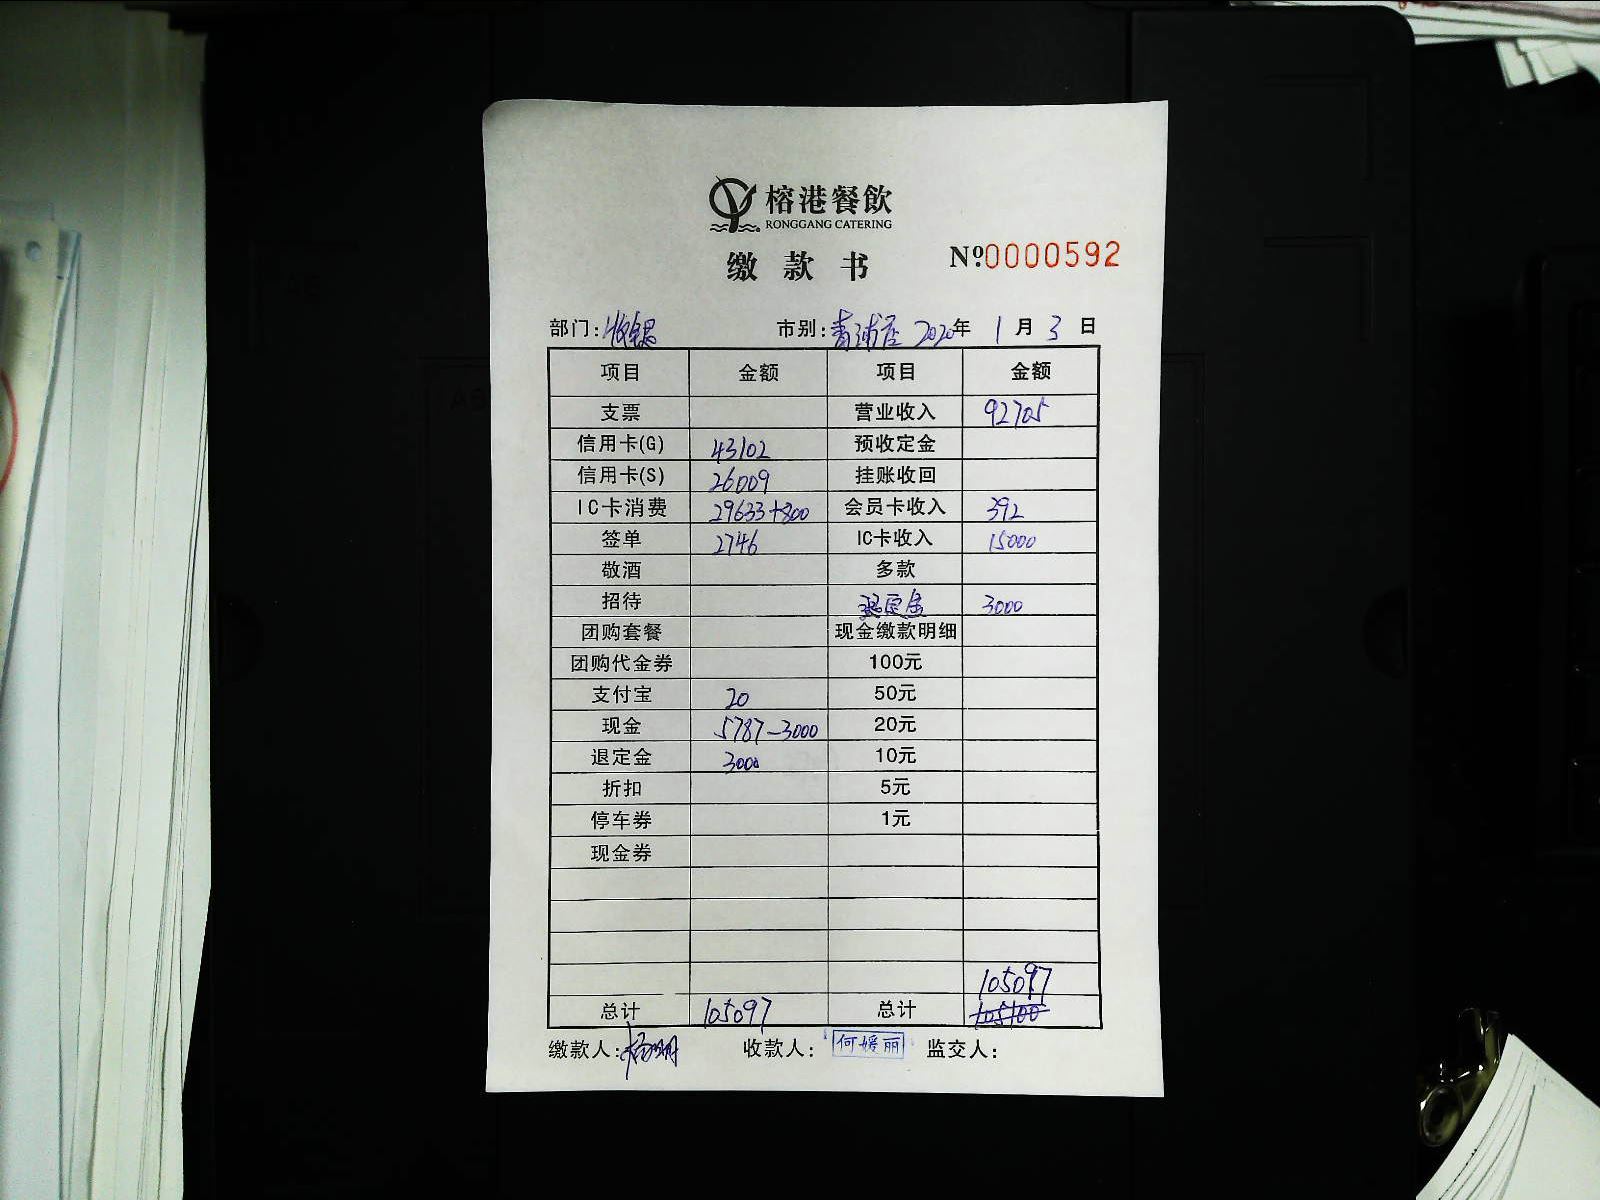 榕港餐飲
RONGGANG CATERING
缴款书
№0000592
部门:收银 市别:青浦店 2020年 1月 3日
项目 金额 项目 金额
支票 营业收入 92705
信用卡(G) 43102 预收定金
信用卡(S) 26009 挂账收回
IC卡消费 29633+800 会员卡收入 392
签单 2746 IC卡收入 15000
敬酒 多款
招待 退定金 3000
团购套餐 现金缴款明细
团购代金券 100元
支付宝 20 50元
现金 5787-3000 20元
退定金 3000 10元
折扣 5元
停车券 1元
现金券
105097
总计 105097 总计 105100
缴款人: 收款人: 何媛丽 监交人:
A6